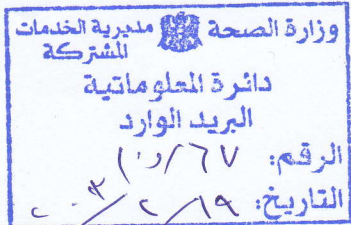 وزارة الصحة مديرية الخدمات
المشتركة
دائرة المعلوماتية
البريد الوارد
الرقم:
التاريخ: ١٩/٢/٢٠٠٣